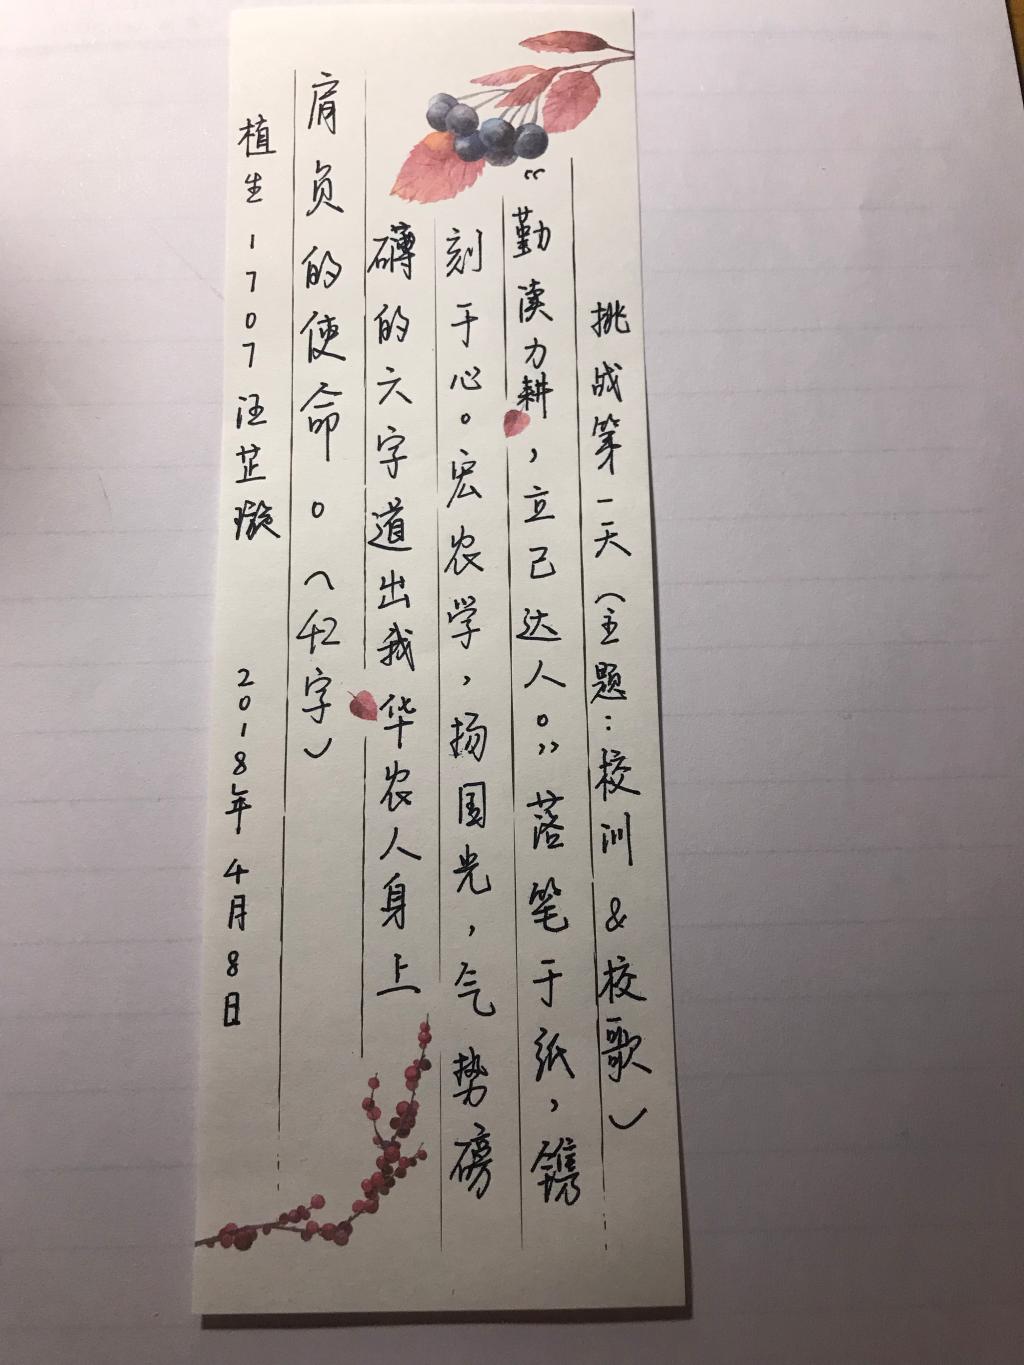 挑战第一天（主题：校训&校歌）
“勤读力耕，立己达人。”落笔于纸，镌
刻于心。宏农学，扬国光，气势磅
礴的六字道出我华农人身上
肩负的使命。（42字）
植生1707汪芷璇 2018年4月8日